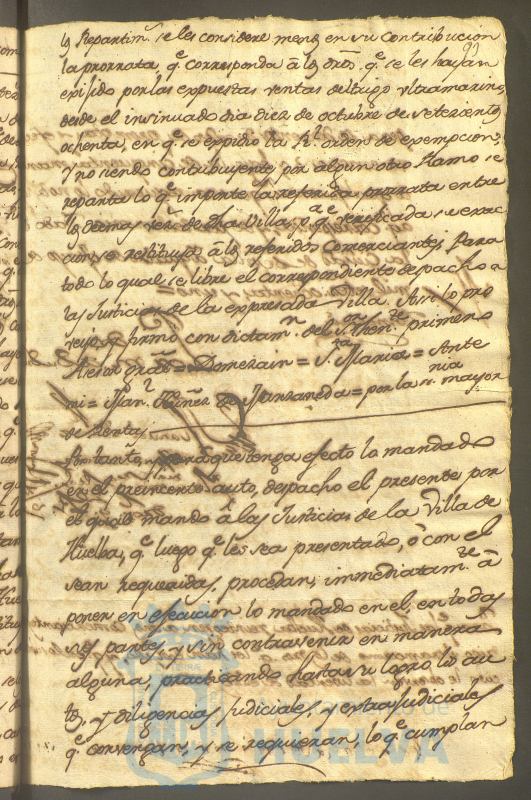 los Repartimtos. se les considere menos en su contribucion
la prorrata qe. corresponda â los dros. qe. se les hayan
exijido por las expuestas ventas del trigo ultramarino
desde el insinuado dia diez de octubre de setecientos
ochenta, en qe. se expidio la Rl. orden de exempcion,
y no siendo contribuyente por algun otro Ramo se
reparta lo qe. importe la referida prorrata entre
los demas vecs. de dha Villa, y verificada su exac
cion se restituya â los referidos Comerciantes. Para
todo lo qual se libre el correspondiente despacho a
las Justicias de la expresada Villa. Asi lo pro
veyo y firmo con dictamn. del Sor. Thente. primero
= Domezain = Ante
mi = Man. Nuñez de Manzaneda = por la mayor
de Rentas.
Por tanto, y para que tenga efecto lo mandado
en el preincerto auto, despacho el presente por
el qual mando â las Justicias de la Villa de
Huelba, qe. luego qe. les sea presentado, ô con el
sean requeridas, procedan, immediatamte. â
poner en ejecucion lo mandado en el, en todas
sus partes, y sin contravenir en manera
alguna, practicando hasta su logro los au
tos, y diligencias judiciales, y extrajudiciales
qe. convengan, y se requieran, lo qe. cumplan
93
HUELVA